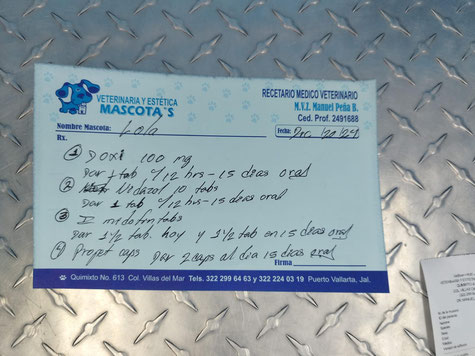 VETERINARIA Y ESTÉTICA
MASCOTA'S
RECETARIO MEDICO VETERINARIO
M.V.Z. Manuel Peña B.
Ced. Prof. 2491688
Nombre Mascota: Lola
Fecha:
Rx.
① Doxi 100 mg
Dar 1 tab c/12 hrs - 15 dias oral
② Vidazol 10 tabs
Dar 1 tab c/12 hrs - 15 dias oral
③ tabs
Dar 1 1/2 tab. hoy y 1 1/2 tab en 15 dias oral
④ Projet caps Dar 2 caps al dia 15 dias oral
Firma
Quimixto No. 613 Col. Villas del Mar Tels. 322 299 64 63 y 322 224 03 19 Puerto Vallarta, Jal.